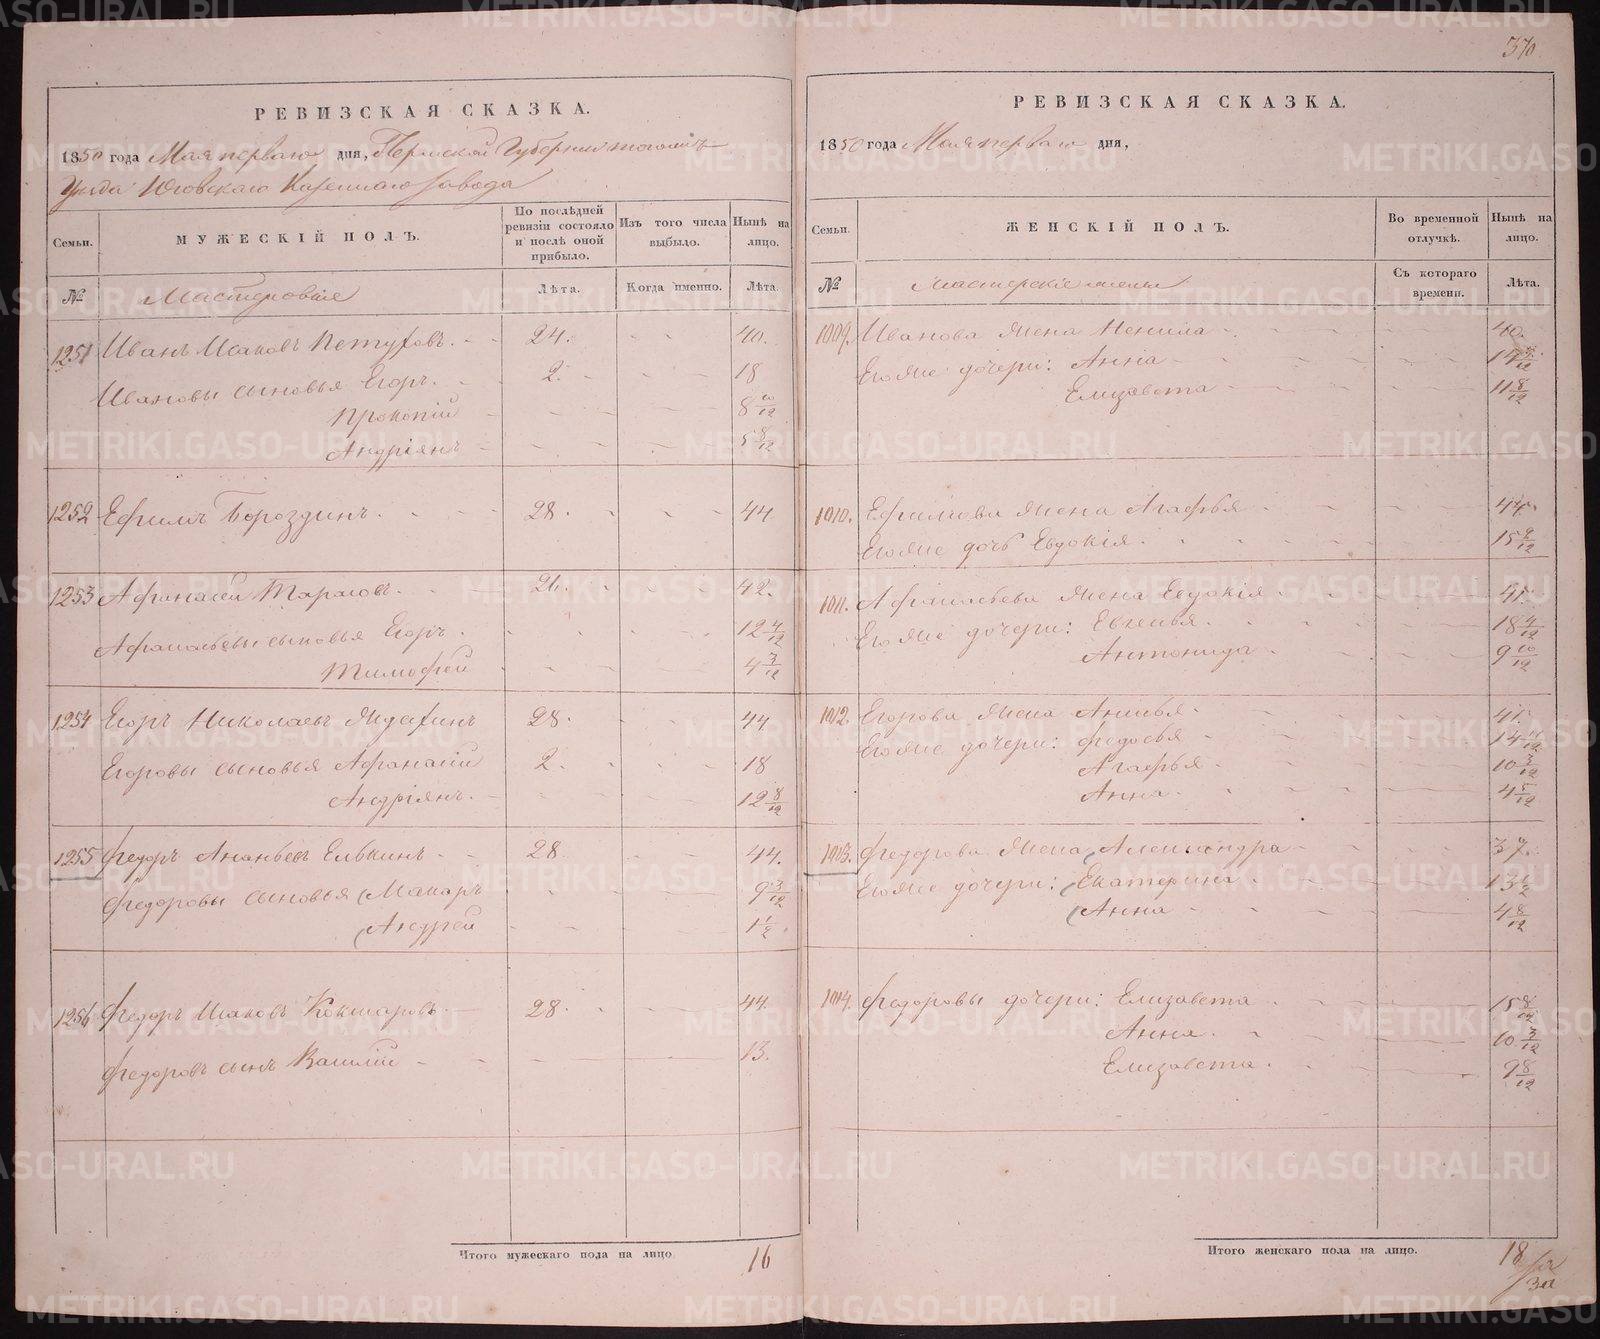 370
РЕВИЗСКАЯ СКАЗКА.
1850 года Мая перваго дня, Пермской Губернии тогожъ
Уѣзда Юговскаго Казеннаго завода
Семьи.
МУЖЕСКІЙ ПОЛЪ.
По послѣдней ревизіи состояло и послѣ оной прибыло.
Изъ того числа выбыло.
Нынѣ на лицо.
№
Мастеровые
Лѣта.
Когда именно.
Лѣта.
1251 Иванъ Исаковъ 24. 40.
Ивановы сыновья Егоръ. 2. 18
Прокопій 8 10/12
Андріянъ 5 8/12
1252 Ефимъ Бороздинъ. 28. 44
1253 Афанасей Тарасовъ. 26. 42.
Афанасьевы сыновья Егоръ. 12 4/12
Тимофей 4 7/12
1254 Егоръ Николаевъ 28. 44
Егоровы сыновья Афанасій 2. 18
Андріянъ. 12 8/12
1255 Федоръ Ананьевъ Елькинъ 28 44.
Федоровы сыновья Макаръ 9 3/12
Андрей 1 1/2.
1256 Федоръ Исаковъ Кокшаровъ. 28. 44.
Федоровъ сынъ Василій 13.
Итого мужескаго пола на лицо 16
РЕВИЗСКАЯ СКАЗКА.
1850 года Мая перваго дня,
Семьи.
ЖЕНСКІЙ ПОЛЪ.
Во временной отлучкѣ.
Нынѣ на лицо.
№
Мастерскіе жены
Съ котораго времени.
Лѣта.
1009. Иванова жена Ненила 40.
Егоже дочери: Анна 14
Елизавета 11 8/12
1010. Ефимова жена Агафья 44.
Егоже дочь Евдокія. 15 9/12
1011. Афанасьева жена Евдокія 41.
Егоже дочери: Евгенья. 18 4/12
Антонида 9 10/12
1012. Егорова жена Анисья 41.
Егоже дочери: Федосья 14 11/12
Агафья 10 3/12
Анна. 4 5/12
1013. Федорова жена Александра 37.
Егоже дочери: Екатерина 13 1/2
Анна 4 8/12
1014. Федоровы дочери: Елизавета 15 8/12
Анна. 10 3/12
Елизавета. 9 8/12
Итого женскаго пола на лицо. 18